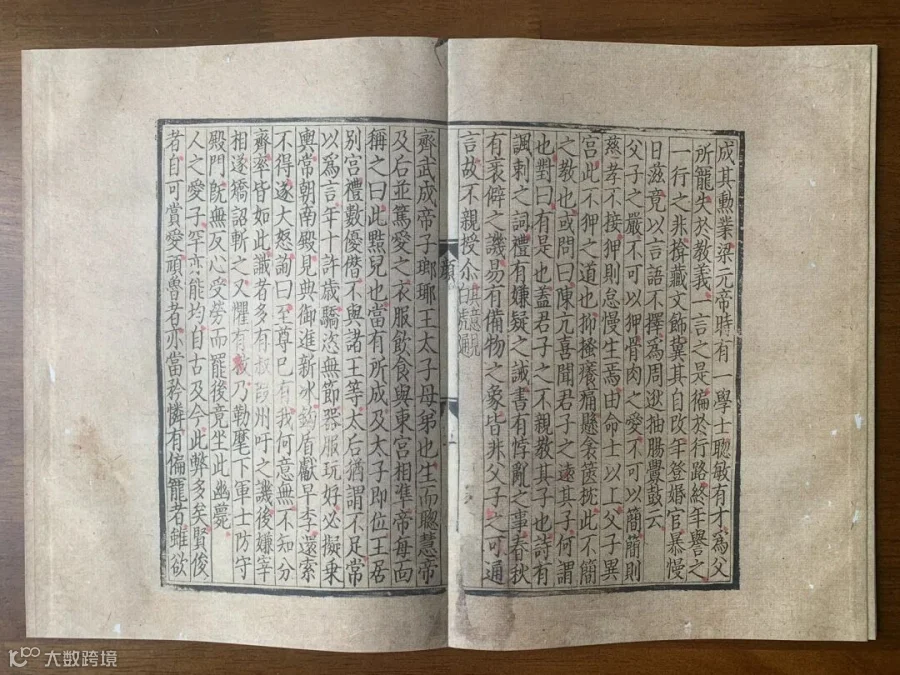 成其勲業梁元帝時有一學士聰敏有才為父
所寵失於教義一言之是徧於行路終年譽之
一行之非揜藏文飾冀其自改年登婚官暴慢
日滋竟以言語不擇為周逖抽腸釁鼓云
父子之嚴不可以狎骨肉之愛不可以簡簡則
慈孝不接狎則怠慢生焉由命士以上父子異
宮此不狎之道也抑搔癢痛懸衾篋枕此不簡
之教也或問曰陳亢喜聞君子之遠其子何謂
也對曰有是也蓋君子之不親教其子也詩有
諷刺之詞禮有嫌疑之誡書有悖亂之事春秋
有衺僻之譏易有備物之象皆非父子之可通
言故不親授尒其意見白虎通
顔
上
齊武成帝子瑯瑘王太子母弟也生而聰慧帝
及后並篤愛之衣服飲食與東宮相準帝每面
稱之曰此黠兒也當有所成及太子即位王居
別宮禮數優僭不與諸王等太后猶謂不足常
以為言年十許歲驕恣無節器服玩好必擬乘
輿常朝南殿見典御進新冰鈎盾獻早李還索
不得遂大怒訽曰至尊已有我何意無不知分
齊率皆如此識者多有叔段州吁之譏後嫌宰
相遂矯詔斬之又懼有救乃勒麾下軍士防守
殿門既無反心受勞而罷後竟坐此幽薨
人之愛子罕亦能均自古及今此弊多矣賢俊
者自可賞愛頑魯者亦當矜憐有偏寵者雖欲
大数跨境